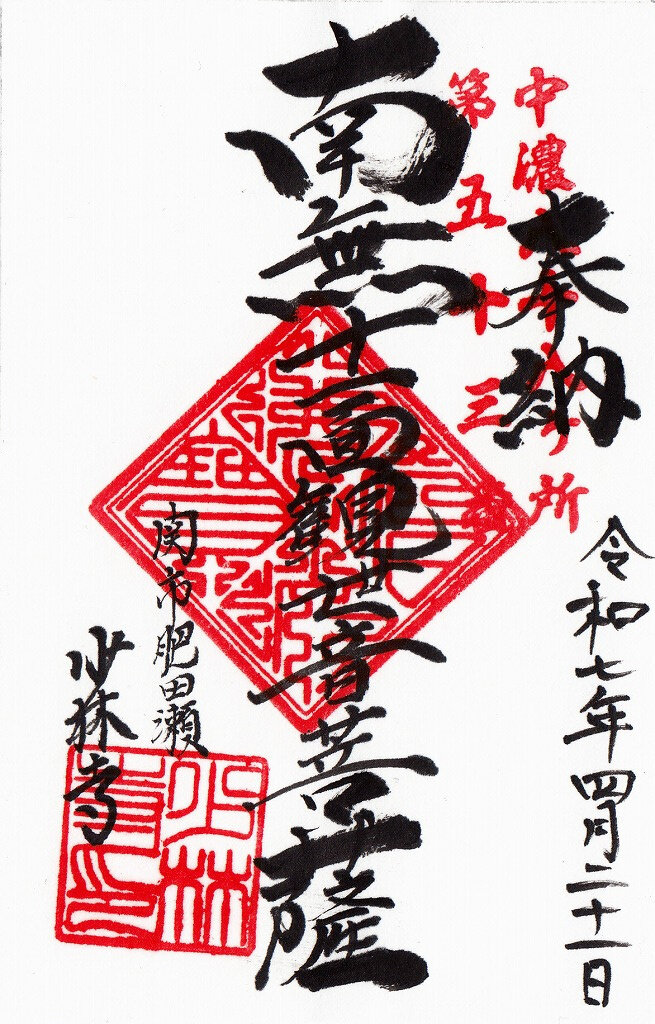 奉納
中濃三十三ヶ所
第五十三番
令和七年四月二十一日
南無十一面観世音菩薩
関市肥田瀬
少林寺
少林寺印